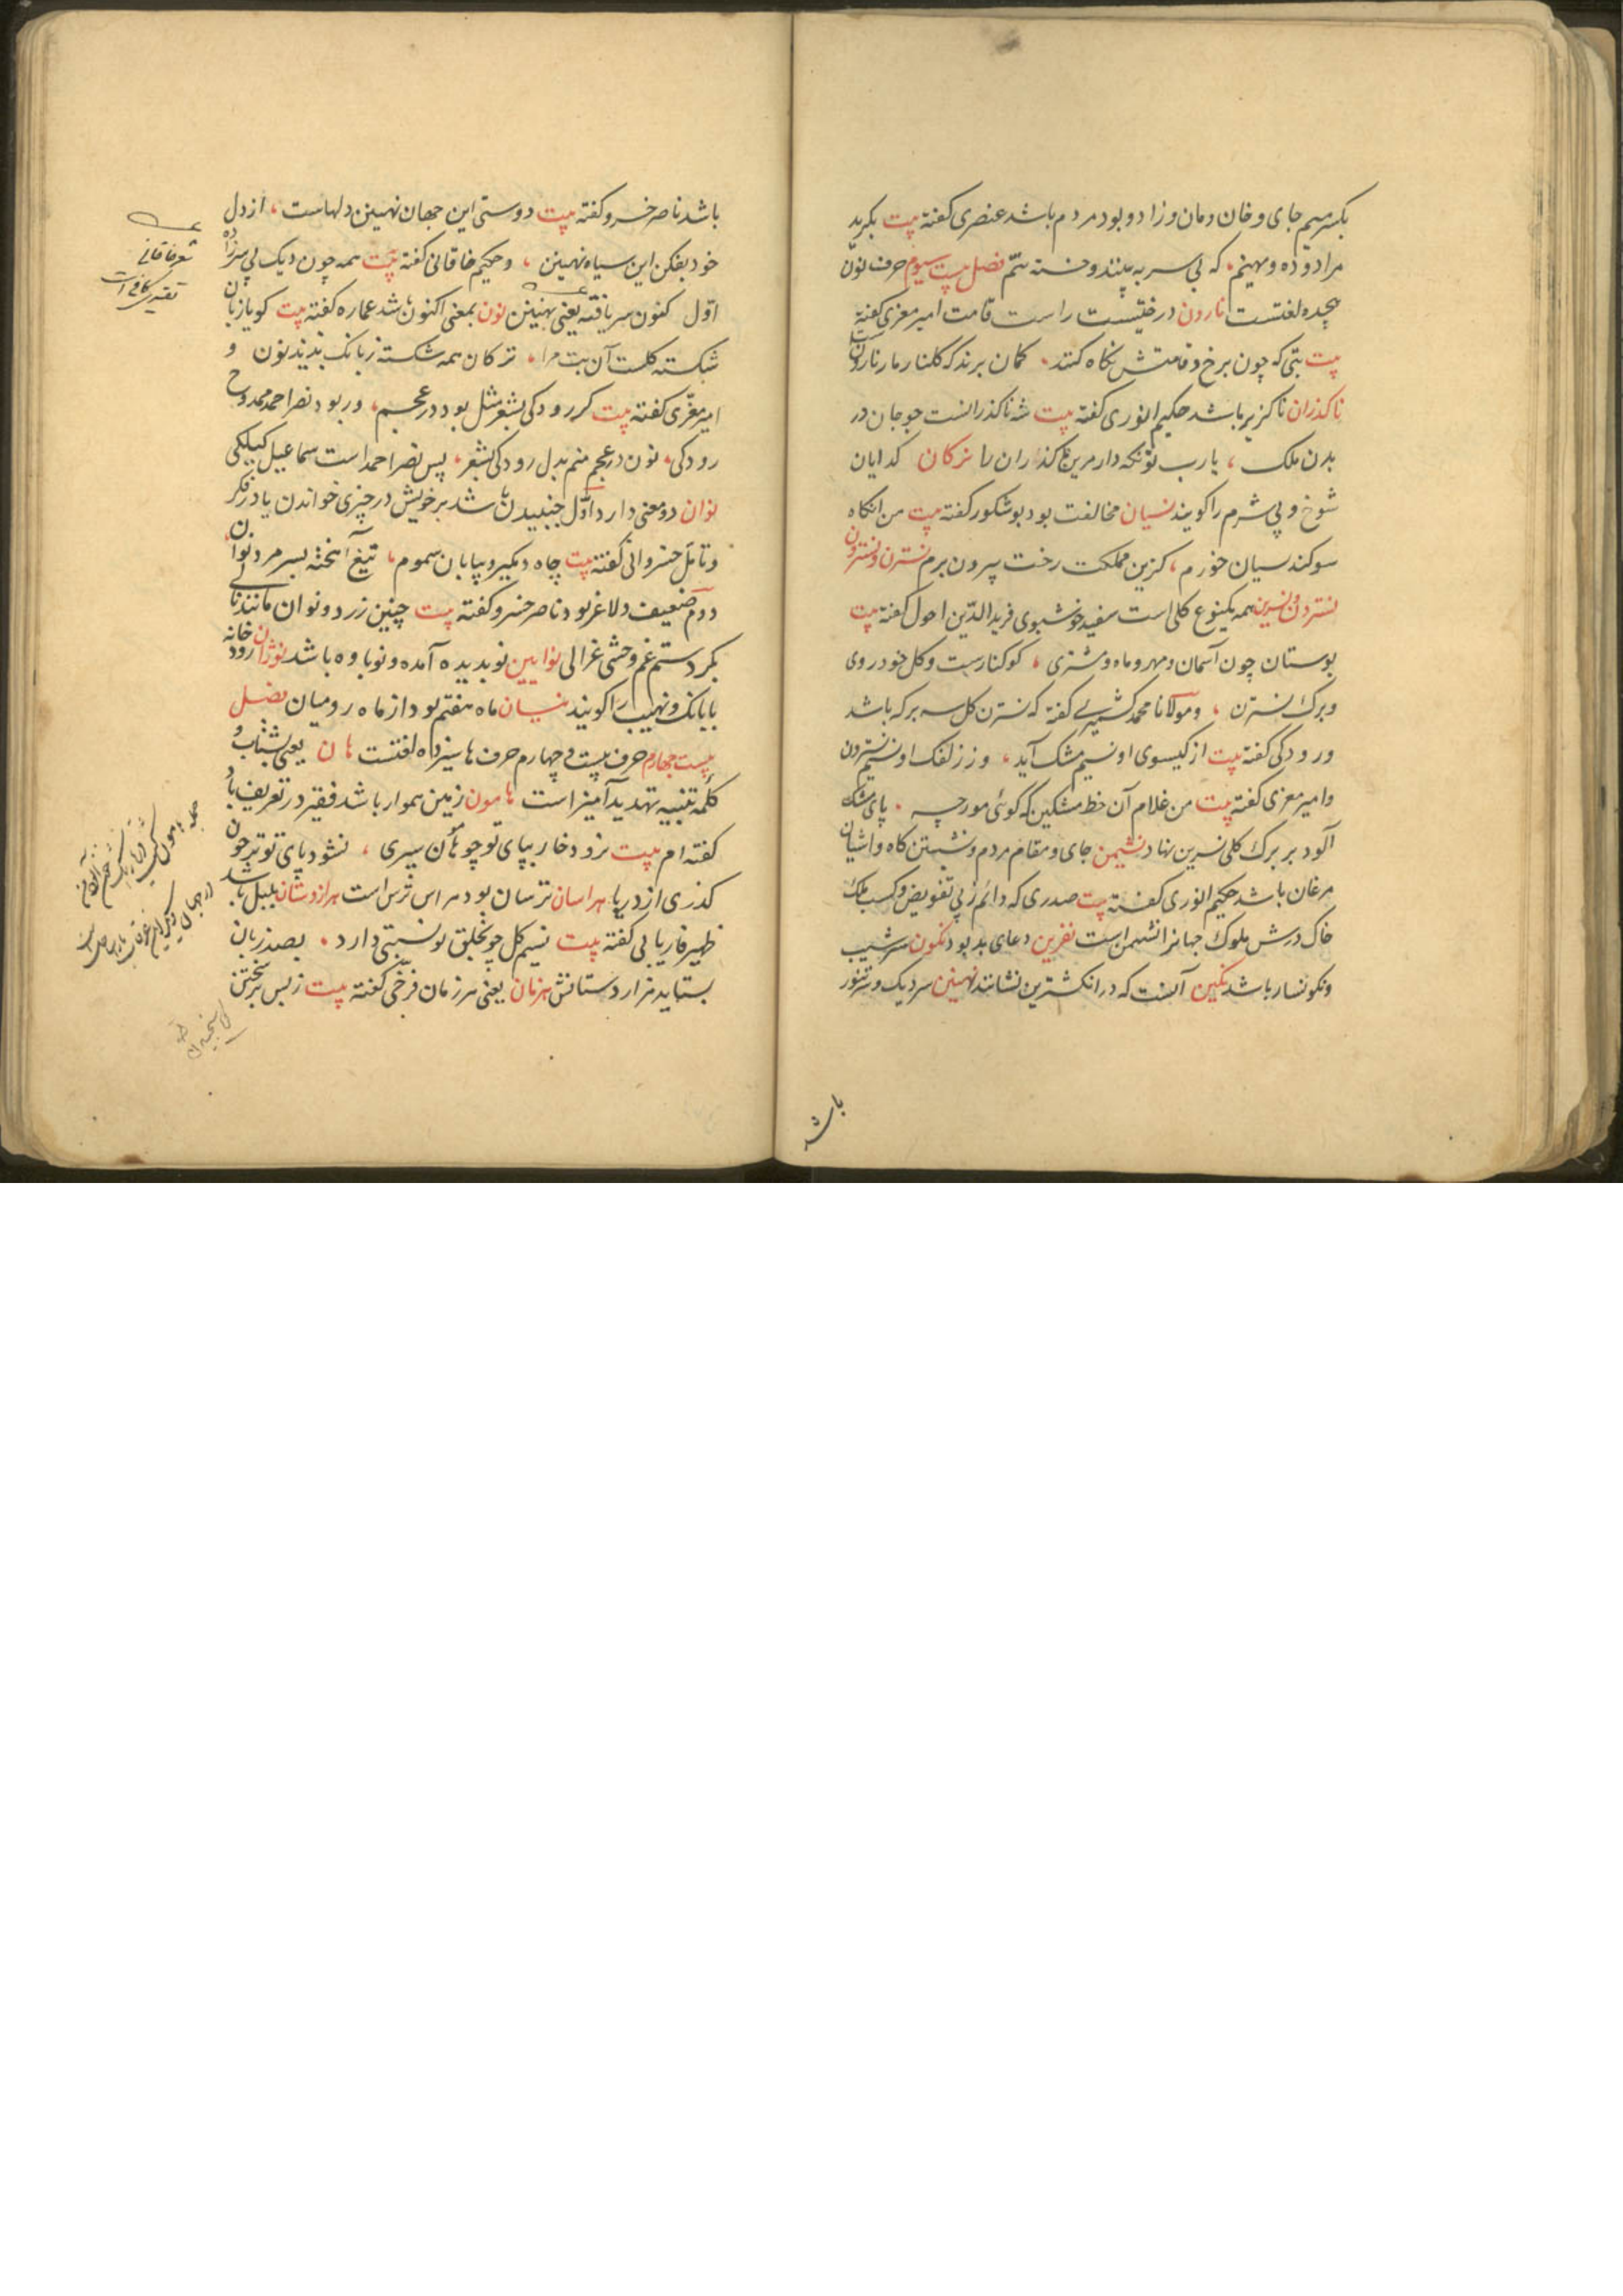 بکسر میم جای و خان و مان و زاد و بود مردم باشد عنصری کفته بیت بکرید
مرا دوده و میهنم، که بی سر به بینند خسته تنم فصل بیست سیوم حرف نون
هجده لغتست نارون درختیست راست قامت امیر معزی کفته
بیت بتی که چون برخ و قامتش نکاه کنند، کمان برند که کلنار بار نارونست
ناکذران ناکزیر باشد حکیم انوری کفته بیت شه ناکذرانست چو جان در
بدن ملک، یا رب تو نکه دار مرین ناکذران را نرکان کدایان
شوخ و بی شرم را کویند نسیان مخالفت بود بوشکور کفته بیت من انکاه
سوکند نسیان خورم، کزین مملکت رخت بیرون برم نسترن و نسترون
نستردن و نسرین همه یکنوع کلی است سفید خوشبوی فریدالدین احول کفته بیت
بوستان چون آسمان و مهر و ماه و مشتری، کوکنارست و کل خودروی
و برک نسترن، و مولانا محمد کشمیری کفته که نسترن کل سه برکه باشد
و رودکی کفته بیت از کیسوی او نسیم مشک آید، وز زلفک او نسیم نسترون
و امیر معزی کفته بیت من غلام آن خط مشکین که کوئی مورچه، پای مشک
آلود بر برک کل نسرین نهاد نشیمن جای و مقام مردم و نشستن کاه و اشیان
مرغان باشد حکیم انوری کفته بیت صدری که دائم از پی تفویض و کسب ملک
خاک درش ملوک جهانرا نشیمن است نفرین دعای بد بود نکون سرشیب
و نکونسار باشد نکین آنست که در انکشترین نشانند نهنبن سر دیک و تنور
باشد
باشد ناصر خسرو کفته بیت دوستی این جهان نهنبن دلهاست، از دل
خود بفکن این سیاه نهنبن، و حکیم خاقانی کفته بیت همه چون دیک بی سر زاده
اول کنون سر یافته یعنی نهنبن نون بمعنی اکنون باشد عماره کفته بیت کویا زبان
شکسته کلست آن بت مرا، ترکان همه شکسته زبانک بدیند نون و
امیر معزی کفته بیت کر رودکی بشعر مثل بود در عجم، ور بود نصر احمد ممدوح
رودکی، نون در عجم منم بدل رودکی بشعر، پس نصر احمد است سماعیل کیلکی
نوان دو معنی دارد اول جنبیدن باشد بر خویش در چیزی خواندن یا در فکر
و تامل خسروانی کفته بیت چاه دمکیر و بیابان سموم، تیغ آهخته بسر مرد نوان
دوم ضعیف و لاغر بود ناصر خسرو کفته بیت چنین زرد و نوان مانند نالی
بکردستم غم وحشی غزالی نوایین نو بدیده آمده و نوباوه باشد نوژان رودخانه
با بانک و نهیب را کویند نیسان ماه هفتم بود از ماه رومیان فصل
بیست چهارم حرف بیست و چهارم حرف ها سیزده لغتست هان یعنی بشتاب و
کلمه تنبیه تهدید آمیز است هامون زمین هموار باشد فقیر در تعریف باد
کفته ام بیت نرود خار بپای تو چو هامون سپری، نشود پای تو تر چون
کذری از دریا هراسان ترسان بود هراس ترس است هزاردستان بلبل باشد
ظهیر فاریابی کفته بیت نسیم کل چو بخلق تو نسبتی دارد، بصد زبان
بستاید هزاردستانش هزمان یعنی هر زمان فرخی کفته بیت ز بس برسختن
شعر خاقانی